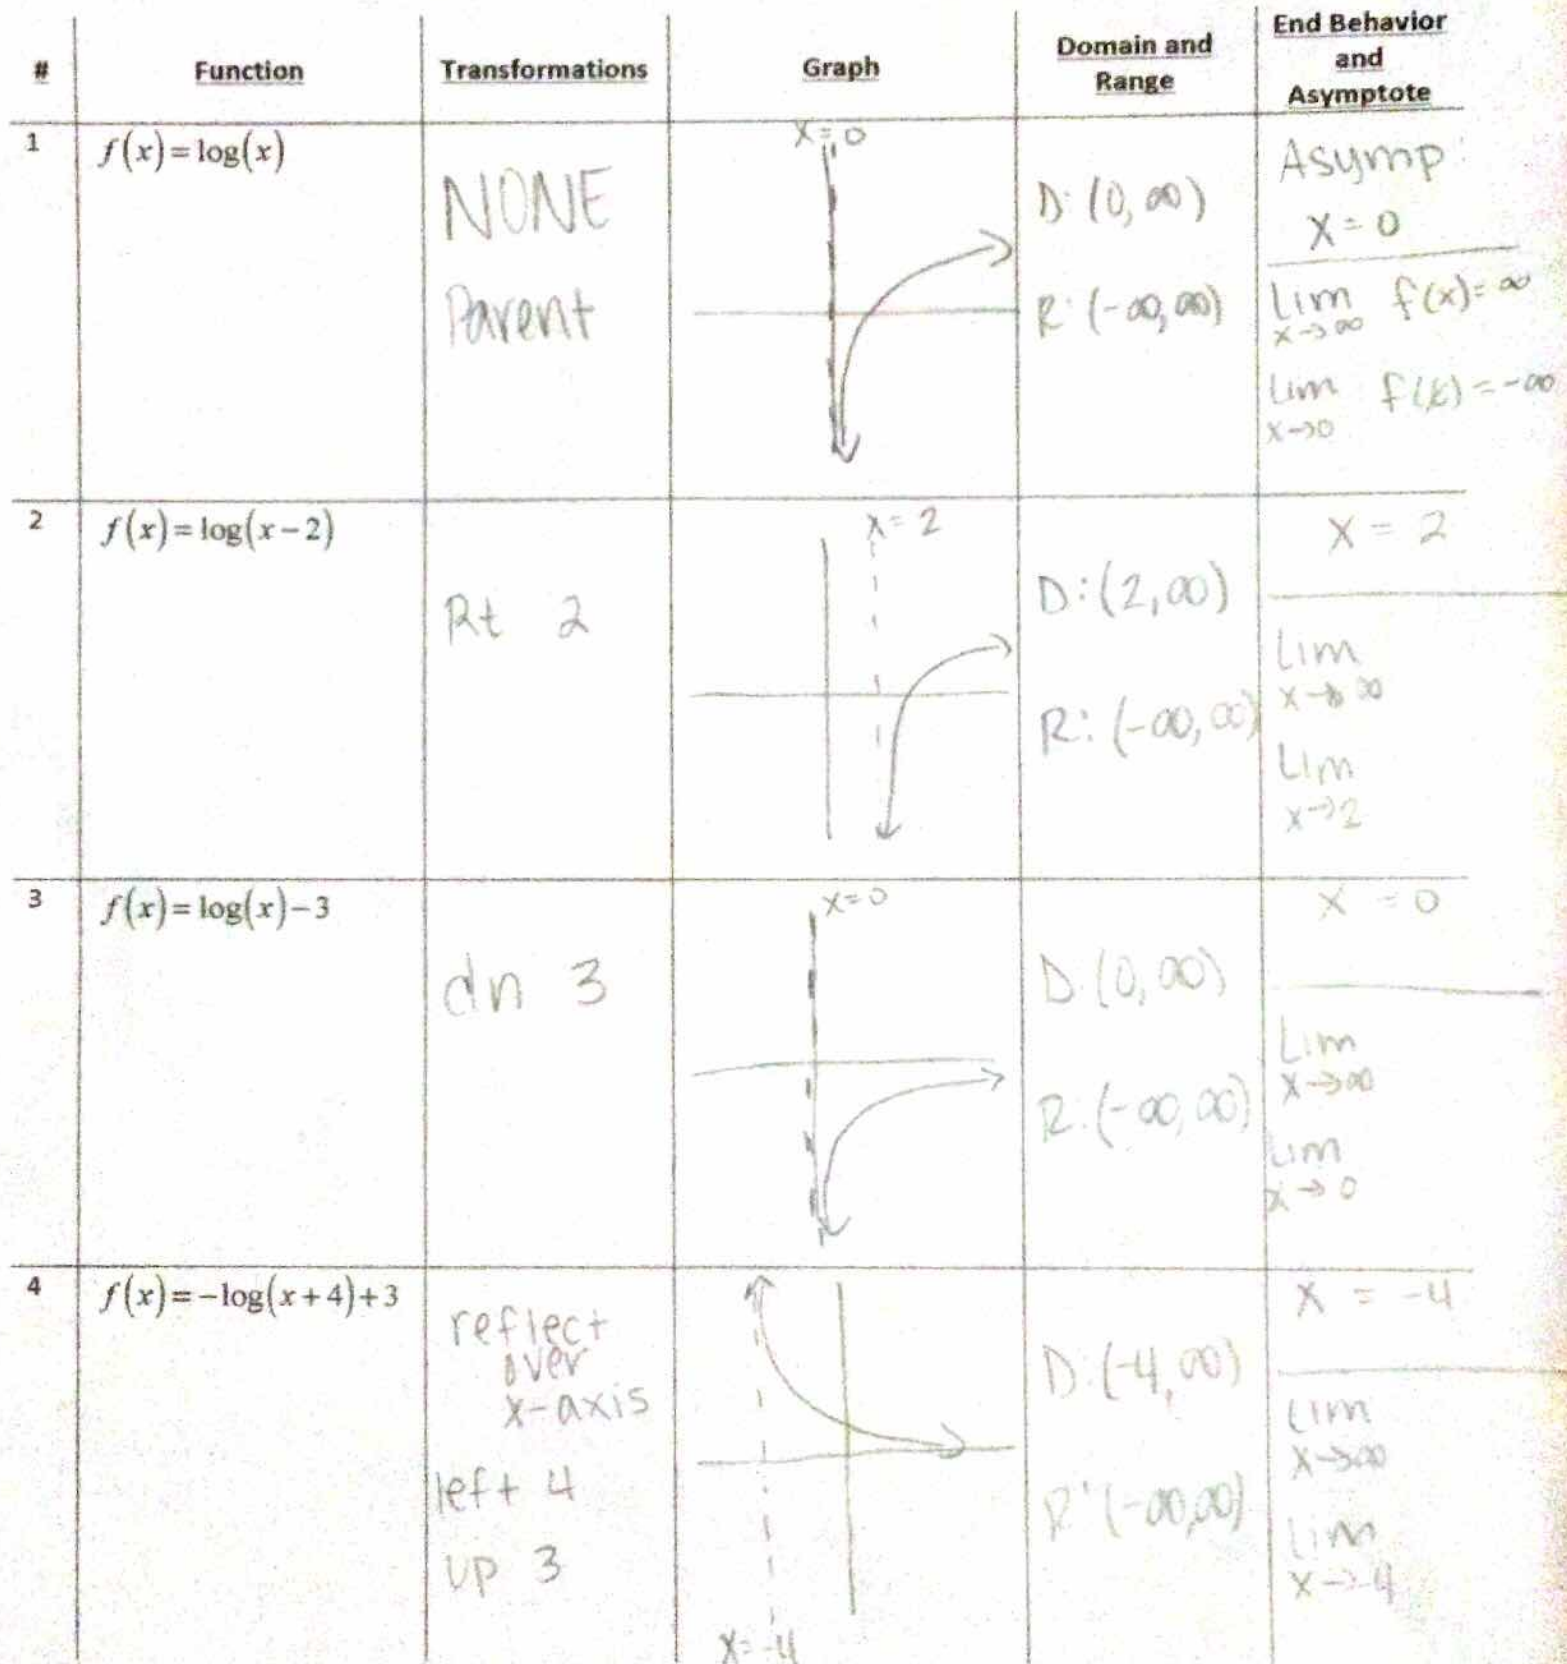 # Function Transformations Graph Domain and Range End Behavior and Asymptote
1 f(x)=log(x)
NONE
Parent
x=0
D: (0, ∞)
R: (-∞, ∞)
Asymp:
x=0
lim f(x)=∞
x→∞
lim f(x)=-∞
x→0
2 f(x)=log(x-2)
Rt 2
x=2
D: (2, ∞)
R: (-∞, ∞)
x = 2
Lim
x→∞
Lim
x→2
3 f(x)=log(x)-3
dn 3
x=0
D: (0, ∞)
R: (-∞, ∞)
x = 0
Lim
x→∞
Lim
x→0
4 f(x)=-log(x+4)+3
reflect
over
x-axis
left 4
up 3
x=-4
D: (-4, ∞)
R: (-∞, ∞)
x = -4
Lim
x→∞
Lim
x→-4